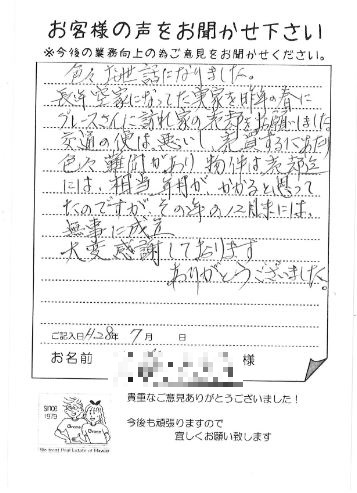 お客様の声をお聞かせ下さい
※今後の業務向上の為ご意見をお聞かせください。
色々お世話になりました。
長年空家になってた実家を昨年の春に
グレースさんに訪れ家の売却をお願いしました
交通の便は悪いし、売買するにあたり
色々難問があり物件は売却迄
には、相当年月がかかると思って
たのですがその年の12月末には、
無事に成立
大変感謝しております
ありがとうございました。
ご記入日 H28年 7月 日
お名前 様
貴重なご意見ありがとうございました！
今後も頑張りますので
宜しくお願い致します
SINCE
1979
Grace
Grace